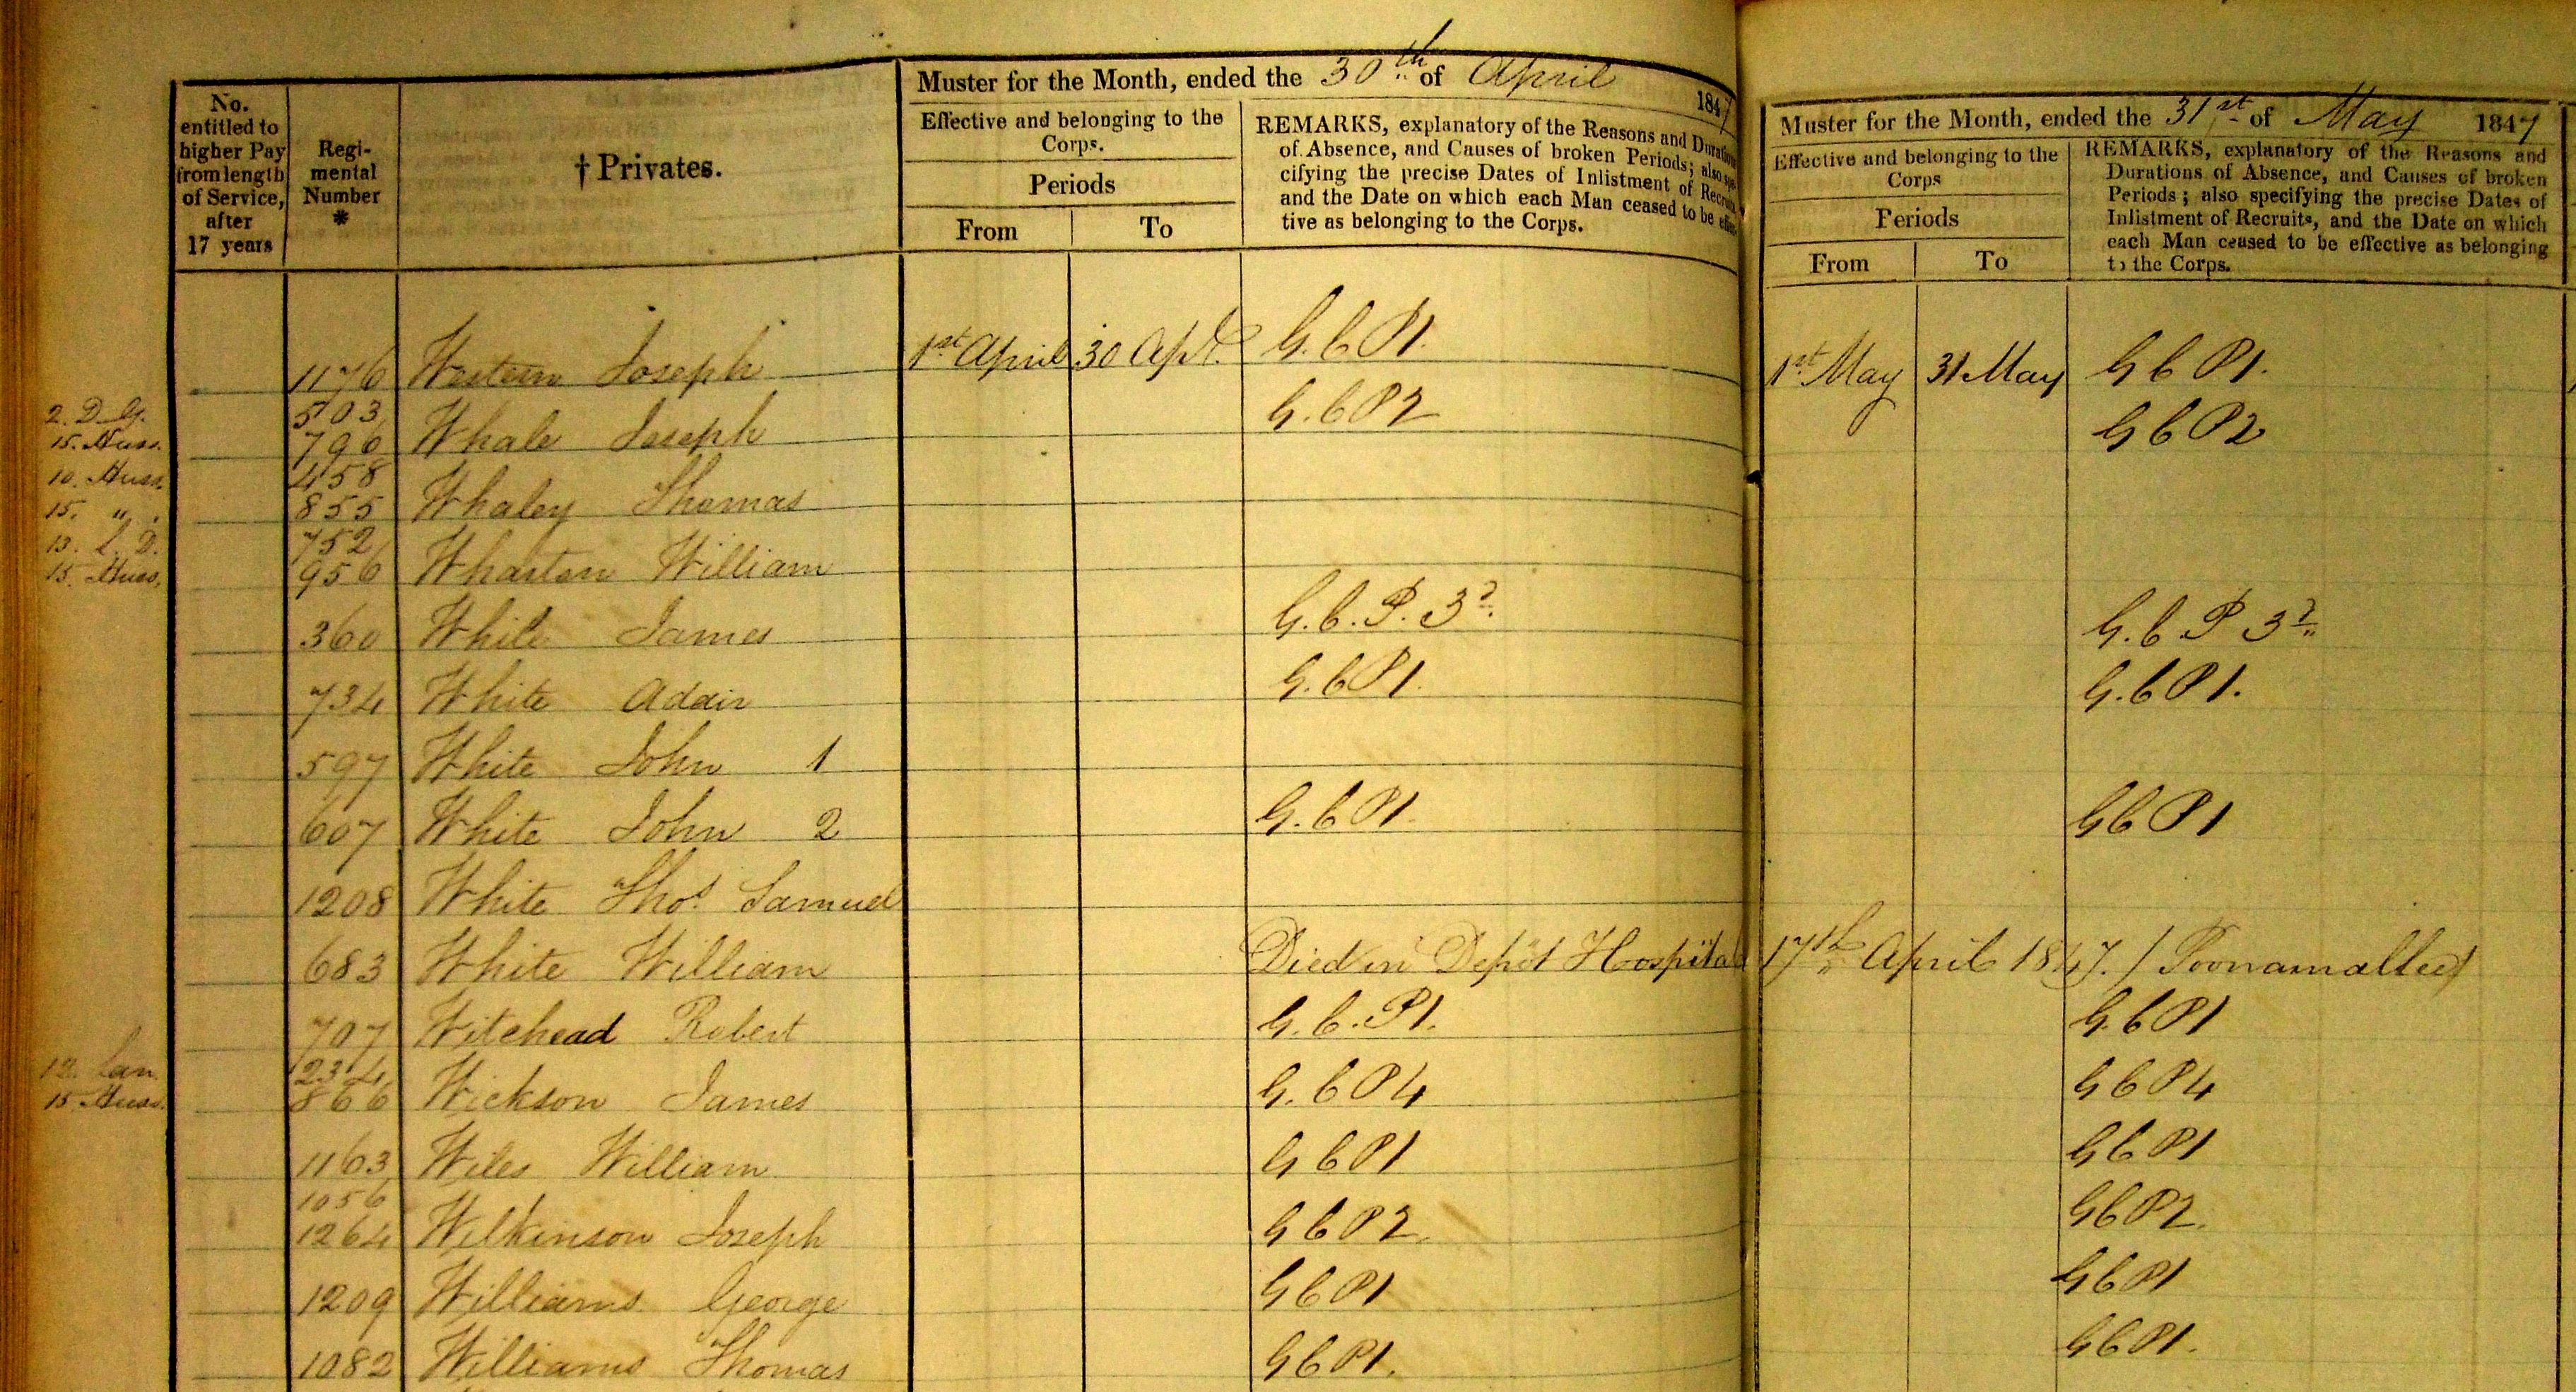 Muster for the Month, ended the 30th of April 1847
No. entitled to higher Pay from length of Service, after 17 years
Regimental Number *
† Privates.
Effective and belonging to the Corps.
Periods
From To
REMARKS, explanatory of the Reasons and Duration
of Absence, and Causes of broken Periods; also spe-
cifying the precise Dates of Inlistment of Recruits
and the Date on which each Man ceased to be effec-
tive as belonging to the Corps.
Muster for the Month, ended the 31st of May 1847
Effective and belonging to the Corps
Periods
From To
REMARKS, explanatory of the Reasons and
Durations of Absence, and Causes of broken
Periods; also specifying the precise Dates of
Inlistment of Recruits, and the Date on which
each Man ceased to be effective as belonging
to the Corps.
1176 Western Joseph 1st April 30 Apl. G.C P1. 1st May 31 May G C P1.
2. D. G. 503
15. Huss. 796 Whale Joseph G.C P2 G C P2
10. Huss. 458
15. " . 855 Whaley Thomas
13. L. D. 752
15. Huss. 956 Wharton William
360 White James G.C.P. 3d. G.C P 3d
734 White Adair G.C P1. G.C P1.
597 White John 1
607 White John 2 G.C P1. G C P1
1208 White Thos. Samuel
683 White William Died in Depôt Hospital 17th April 1847. / Poonamallee /
707 Witehead Robert G.C.P1. G.C P1
12. Lan. 1234
15 Huss. 866 Wickson James G.C P4 G C P4
1163 Wiles William G C P1 G C P1
1056
1264 Wilkinson Joseph G C P2. G C P2.
1209 Williams George G C P1 G C P1
1082 Williams Thomas G C P1. G C P1.